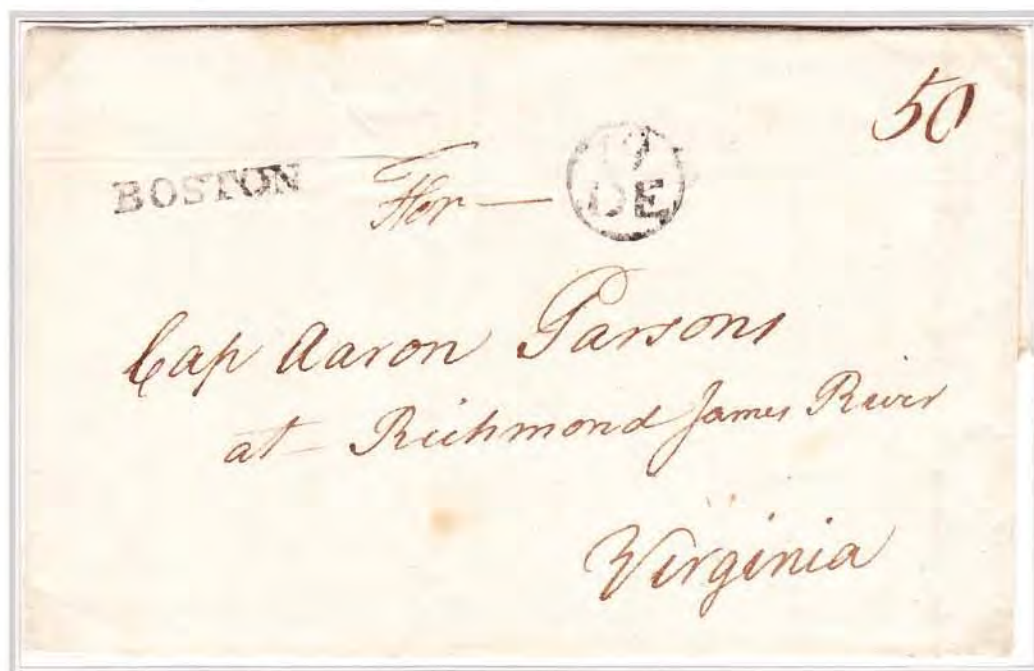 50
BOSTON
For —
DE
Cap Aaron Parsons
at Richmond James River
Virginia